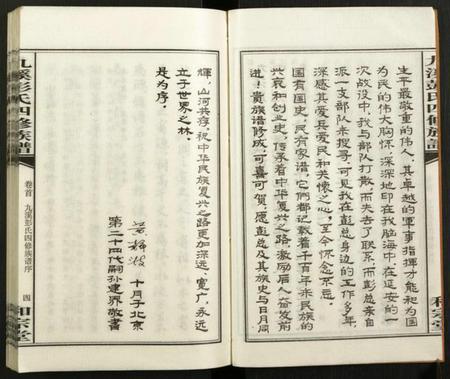 九溪彭氏四修族譜
生平最敬重的有两点,其卓越的軍事指挥才能和为国
为民的伟大胸怀,深深地印在我脑海中在延安的一
次战役中,我与部队打散,而失去了联系,而彭总亲自
派一支部队来搜寻,可见我在彭总身边的工作多年,
深感其爱兵爱民和关懷之心,至今怀念不忘。
国有国史,民有家谱,它們都记載着千百年来民族的
兴衰和创业史,传承着中华复兴之路,激励后人奋发前
进!贵族谱修成,可喜可贺,愿彭总及其族史与日月同
和宗堂
輝,山河共存,祝中华民族复兴之路更加深远、宽广,永远
立于世界之林。
是为序。
十月于北京
第二十四代嗣孙建界敬書
九溪彭氏四修族譜
卷首 九溪彭氏四修族谱序
四
和宗堂